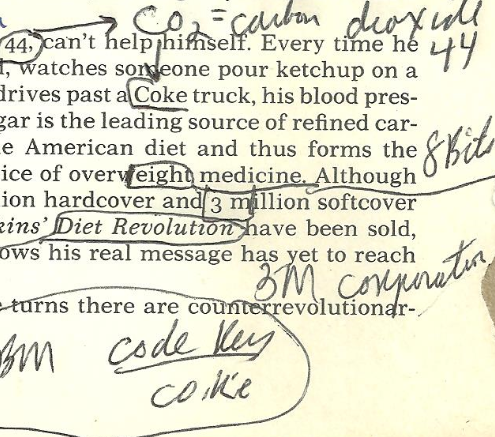 CO2 = carbon dioxide
44, can't help himself. Every time he
44
d, watches someone pour ketchup on a
drives past a Coke truck, his blood pres-
gar is the leading source of refined car-
e American diet and thus forms the
8 Bits
ice of overweight medicine. Although
ion hardcover and 3 million softcover
kins' Diet Revolution have been sold,
ows his real message has yet to reach
3M corporation
e turns there are counterrevolutionar-
3M
code key
coke